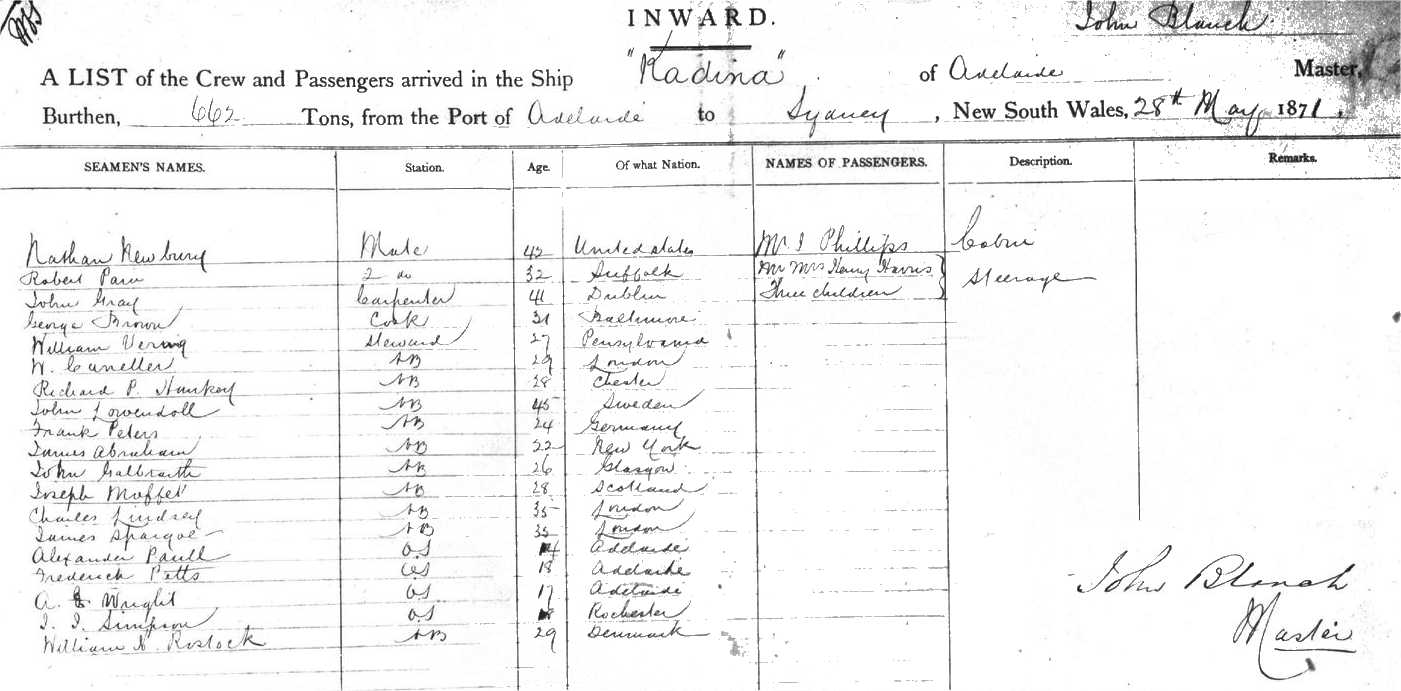 INWARD.
John Blanch
A LIST of the Crew and Passengers arrived in the Ship "Kadina" of Adelaide Master,
Burthen, 662 Tons, from the Port of Adelaide to Sydney, New South Wales, 28th May 1871.
SEAMEN'S NAMES. Station. Age. Of what Nation. NAMES OF PASSENGERS. Description. Remarks.
Nathan Newbury Mate 42 United states Mr I Phillips Cabin
Robert 2 do 32 Suffolk Mr Mrs Henry Harris Steerage
John Gray Carpenter 41 Dublin Three children
George Brown Cook 31 Baltimore
William Steward 27 Pensylvania
W. AB 29 London
Richard P. Hankey AB 28 Chester
John Lowendoll AB 45 Sweden
Frank Peters AB 24 Germany
James Abraham AB 22 New York
John Galbraith AB 26 Glasgow
Joseph Moffet AB 28 Scotland
Charles Lindsey AB 35 London
James Spargoe AB 35 London
Alexander Paull OS Adelaide
Frederick Petts OS 18 Adelaide
A. Wright OS 17 Adelaide
Simpson OS Rochester
William Rostock AB 29 Denmark
John Blanch
Master